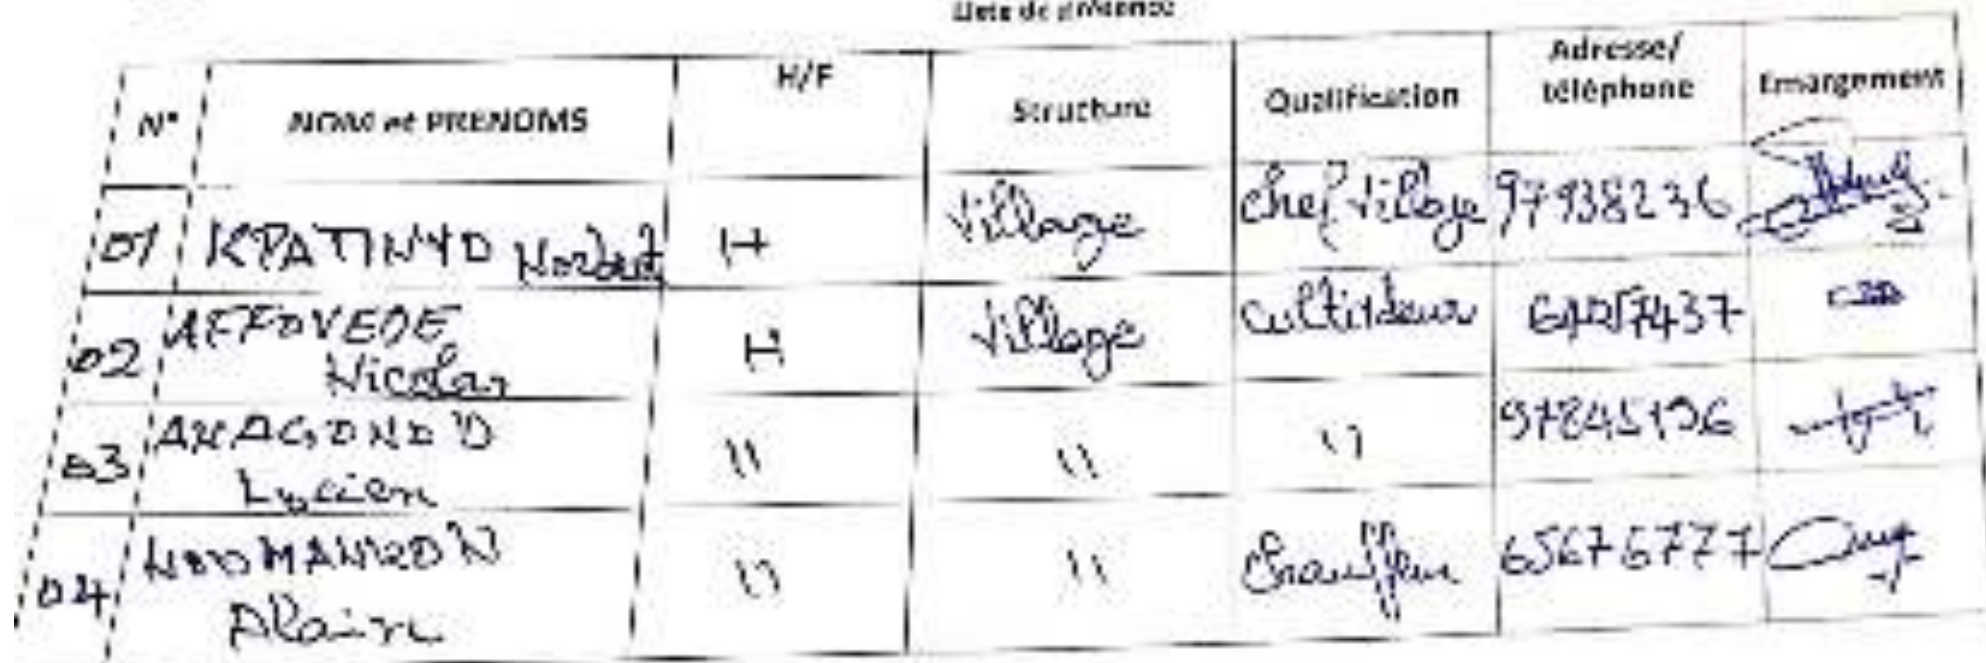 Liste de présence
N° NOM et PRENOMS H/F Structure Qualification Adresse/ téléphone Emargement
01 KPATINYO Norbert H Village Chef village 97938236
02 AFFOVEDE Nicolas H Village Cultivateur
03 Lucien " " " 97845196
04 Alain " " Chauffeur 65676777